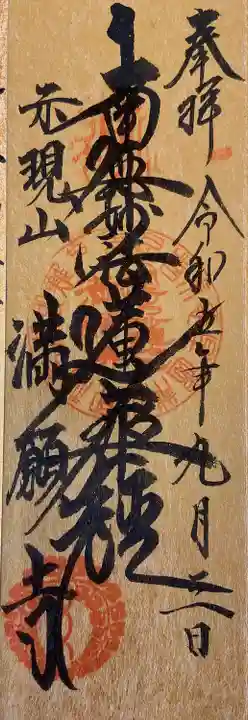 奉拝 令和五年九月二日
南無妙法蓮華経
示現山 満願寺